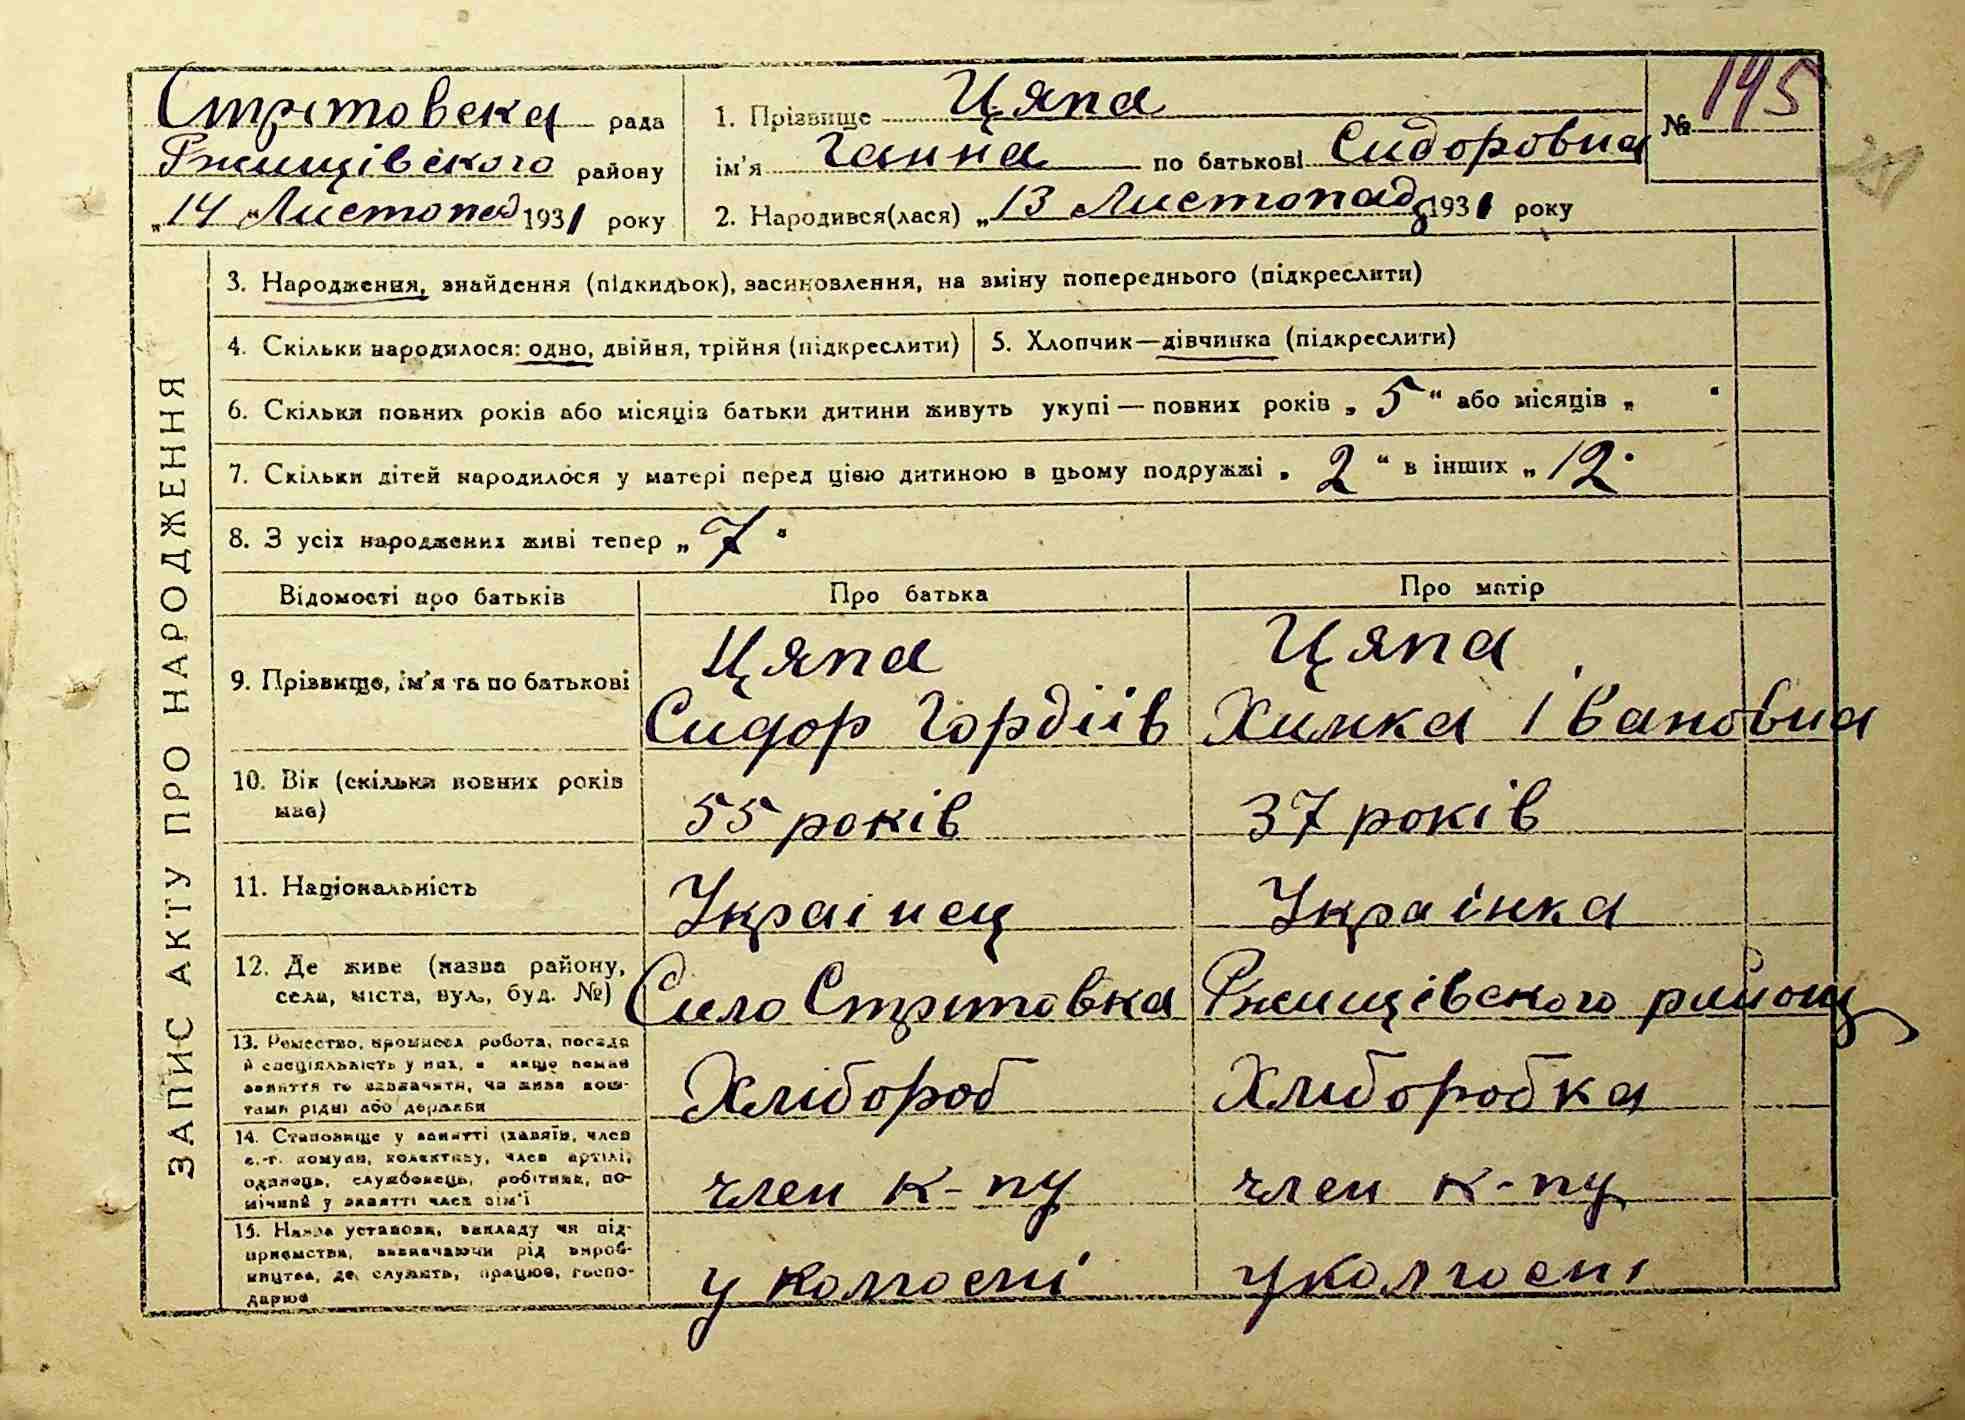 Стрітовска рада
Ржищівского району
„14 „Листопад 1931 року
1. Прізвище Цяпа
ім'я Ганна по батькові Сидоровна
2. Народився(лася) „13 Листопад 1931 року
№ 145
ЗАПИС АКТУ ПРО НАРОДЖЕННЯ
3. Народження, знайдення (підкидьок), засиновлення, на зміну попереднього (підкреслити)
4. Скільки народилося: одно, двійня, трійня (підкреслити)
5. Хлопчик—дівчинка (підкреслити)
6. Скільки повних років або місяців батьки дитини живуть укупі — повних років „ 5 “ або місяців „ “
7. Скільки дітей народилося у матері перед цією дитиною в цьому подружжі „ 2 “ в інших „ 12 “
8. З усіх народжених живі тепер „ 7 “
Відомості про батьків
Про батька
Про матір
9. Прізвище, ім'я та по батькові
Цяпа
Сидор Гордіїв
Цяпа
Химка Івановна
10. Вік (скільки повних років
має)
55 років
37 років
11. Національність
Украінец
Украінка
12. Де живе (назва району,
села, міста, вул., буд. №)
Сило Стрітовка Ржищівского району
13. Ремество, промисел робота, посада
й спеціяльність у них, а якщо немає
заняття то зазначати, чи живе кош-
тами рідні або держави
Хлібороб
Хлиборобка
14. Становище у занятті (хазяїн, член
с.-г. комуни, колективу, член артілі,
одинець, службовець, робітник, по-
мічний у занятті член сім'ї
член к-пу
член к-пу
15. Назва установи, закладу чи під-
приємства, зазначаючи рід вироб-
ництва, де, служить, працює, госпо-
дарює
у колгоспі
у колгоспі